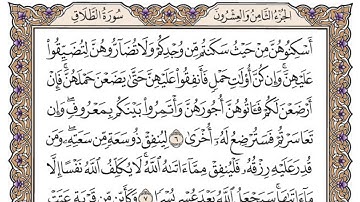 سُورَةُ الطَّلَاقِ
الجُزْءُ الثَّامِنُ وَالعِشْرُونَ
أَسْكِنُوهُنَّ مِنْ حَيْثُ سَكَنتُم مِّن وُجْدِكُمْ وَلَا تُضَارُّوهُنَّ لِتُضَيِّقُوا۟
عَلَيْهِنَّ ۚ وَإِن كُنَّ أُو۟لَٰتِ حَمْلٍ فَأَنفِقُوا۟ عَلَيْهِنَّ حَتَّىٰ يَضَعْنَ حَمْلَهُنَّ ۚ فَإِنْ
أَرْضَعْنَ لَكُمْ فَـَٔاتُوهُنَّ أُجُورَهُنَّ ۖ وَأْتَمِرُوا۟ بَيْنَكُم بِمَعْرُوفٍ ۖ وَإِن
تَعَاسَرْتُمْ فَسَتُرْضِعُ لَهُۥٓ أُخْرَىٰ ٦ لِيُنفِقْ ذُو سَعَةٍ مِّن سَعَتِهِۦ ۖ وَمَن
قُدِرَ عَلَيْهِ رِزْقُهُۥ فَلْيُنفِقْ مِمَّآ ءَاتَىٰهُ ٱللَّهُ ۚ لَا يُكَلِّفُ ٱللَّهُ نَفْسًا إِلَّا
مَآ ءَاتَىٰهَا ۚ سَيَجْعَلُ ٱللَّهُ بَعْدَ عُسْرٍ يُسْرًا ٧ وَكَأَيِّن مِّن قَرْيَةٍ عَتَتْ